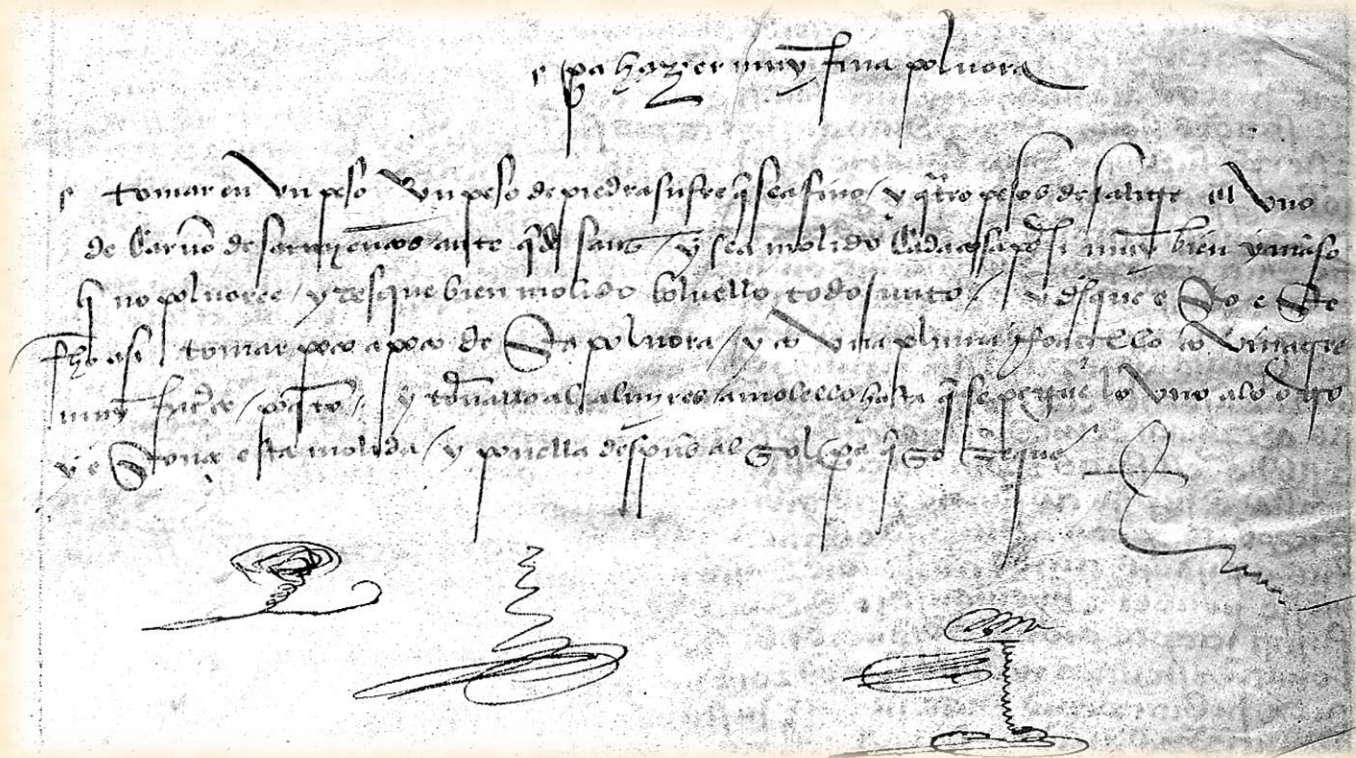 pa hazer muy fina poluora
tomar en vn peso vn peso de piedra sufre q sea fino / y qtro pesos de salitre el vno
de caruo de sarmyentos ante q de / y sea molido cada cosa por si muy bien y manso
q no poluoree / y desque bien molido boluello todo junto / y desque
fho asi tomar poco a poco de sta poluora / y co vna pluma co vinagre
muy fuerte / / y tornallo al almyres a molello hasta q se pegue lo vno a lo otro
esta molida / y ponella despues al sol pa q se seque